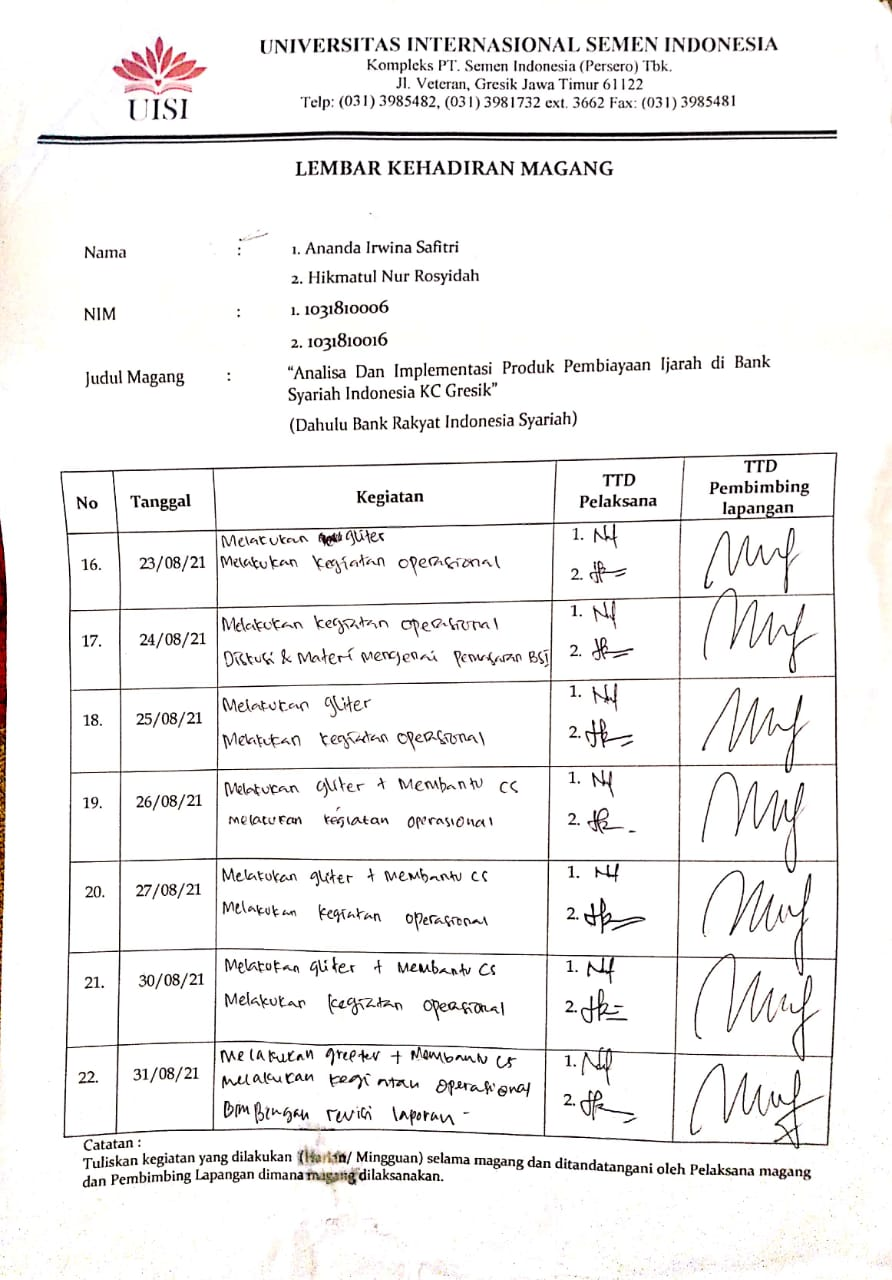 UNIVERSITAS INTERNASIONAL SEMEN INDONESIA
Kompleks PT. Semen Indonesia (Persero) Tbk.
Jl. Veteran, Gresik Jawa Timur 61122
Telp: (031) 3985482, (031) 3981732 ext. 3662 Fax: (031) 3985481
UISI
LEMBAR KEHADIRAN MAGANG
Nama : 1. Ananda Irwina Safitri
2. Hikmatul Nur Rosyidah
NIM : 1. 1031810006
2. 1031810016
Judul Magang : "Analisa Dan Implementasi Produk Pembiayaan Ijarah di Bank
Syariah Indonesia KC Gresik"
(Dahulu Bank Rakyat Indonesia Syariah)
No Tanggal Kegiatan TTD Pelaksana TTD Pembimbing lapangan
Melakukan gliter 1.
16. 23/08/21 Melakukan kegiatan operasional 2.
Melakukan kegiatan operasional 1.
17. 24/08/21 Diskusi & Materi Mengenai Pemasaran BSI 2.
Melakukan gliter 1.
18. 25/08/21 Melakukan kegiatan operasional 2.
Melakukan gliter + Membantu CS 1.
19. 26/08/21 melakukan kegiatan operasional 2.
Melakukan gliter + Membantu CS 1.
20. 27/08/21 Melakukan kegiatan operasional 2.
Melakukan gliter + Membantu CS 1.
21. 30/08/21 Melakukan kegiatan operasional 2.
Melakukan greeter + Membantu CS 1.
22. 31/08/21 melakukan kegiatan operasional
Bimbingan revisi laporan - 2.
Catatan :
Tuliskan kegiatan yang dilakukan (Harian/ Mingguan) selama magang dan ditandatangani oleh Pelaksana magang
dan Pembimbing Lapangan dimana magang dilaksanakan.